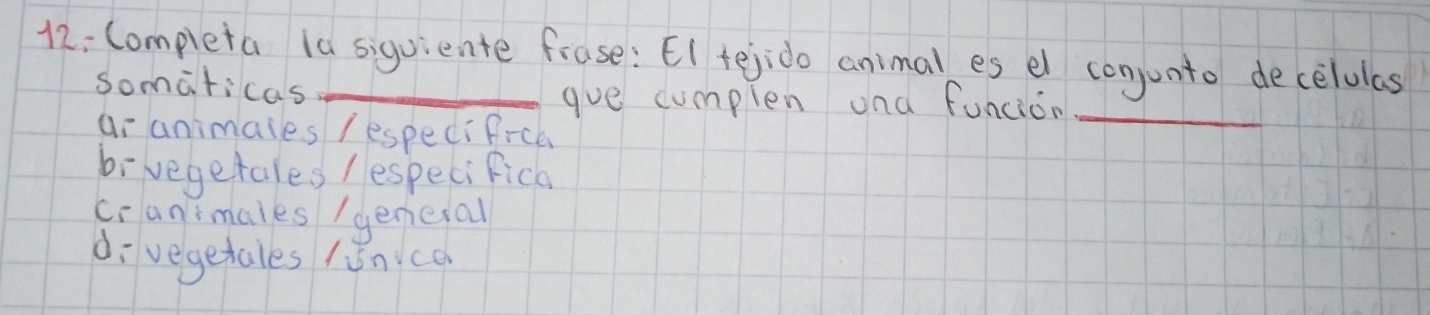 12.- Completa la siguiente frase: El tejido animal es el conjunto de células
somáticas ________ que cumplen una función ________
a.- animales / especifica
b.- vegetales / especifica
c.- animales / general
d.- vegetales / única